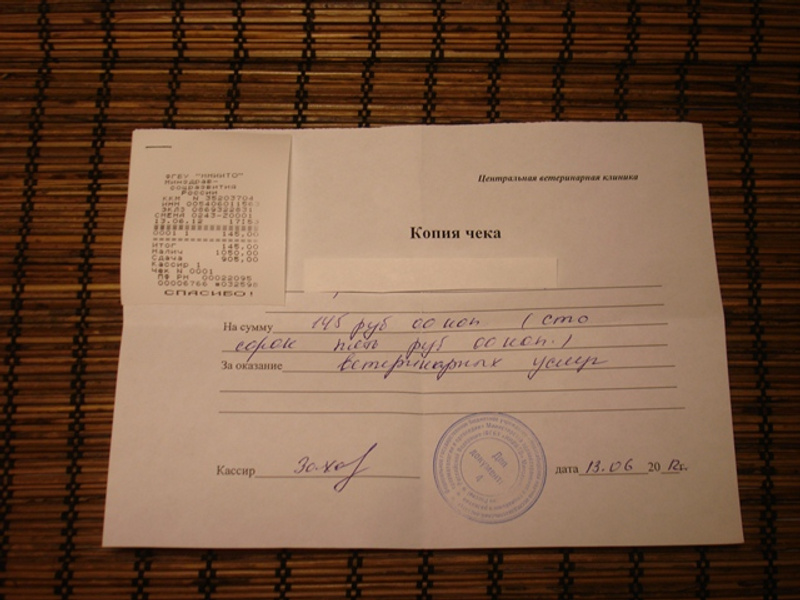 ФГБУ "ННИИТО"
Минздрав-
соцразвития
России
ККМ N 35203704
ИНН 005406011563
ЭКЛЗ 0869322831
СМЕНА 0243-20001
13.06.12
0001 1 145,00
Итог 145.00
Налич 1050.00
Сдача 905.00
Кассир 1
Чек N 0001
ПФ РМ 00022095
00006766 #032598
СПАСИБО!
Центральная ветеринарная клиника
Копия чека
На сумму 145 руб 00 коп (сто
сорок пять руб 00 коп.)
За оказание ветеринарных услуг
Кассир
Для
документов
4
дата 13.06 2012г.